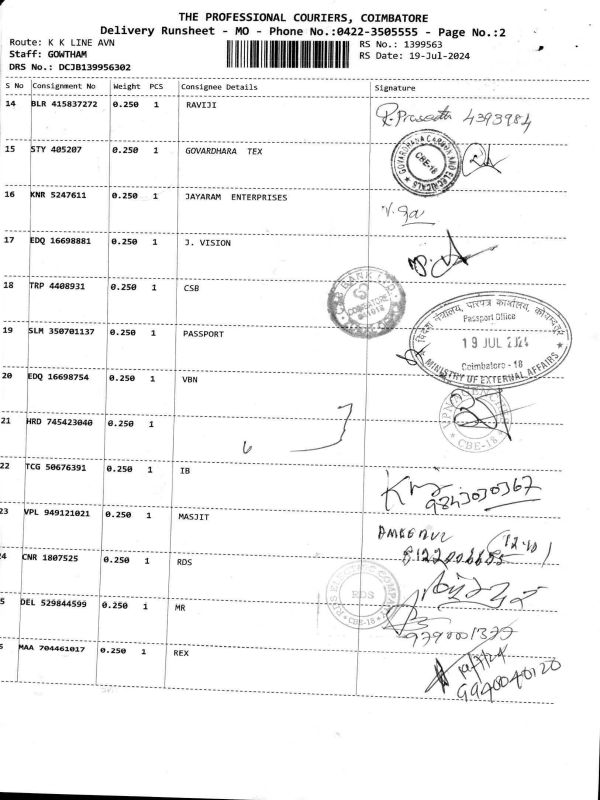 THE PROFESSIONAL COURIERS, COIMBATORE
Delivery Runsheet - MO - Phone No.:0422-3505555 - Page No.:2
Route: K K LINE AVN
RS No.: 1399563
Staff: GOWTHAM
RS Date: 19-Jul-2024
DRS No.: DCJB139956302
S No Consignment No Weight PCS Consignee Details Signature
14 BLR 415837272 0.250 1 RAVIJI
4393984
15 STY 405207 0.250 1 GOVARDHARA TEX
CBE-18
16 KNR 5247611 0.250 1 JAYARAM ENTERPRISES
17 EDQ 16698881 0.250 1 J. VISION
18 TRP 4408931 0.250 1 CSB
COIMBATORE
विदेश मंत्रालय, पारपत्र कार्यालय, कोयम्बत्तूर
Passport Office
19 JUL 2024
Coimbatore - 18
MINISTRY OF EXTERNAL AFFAIRS
19 SLM 350701137 0.250 1 PASSPORT
20 EDQ 16698754 0.250 1 VBN
CBE-18
21 HRD 745423040 0.250 1
22 TCG 50676391 0.250 1 IB
9843030367
23 VPL 949121021 0.250 1 MASJIT
4 CNR 1807525 0.250 1 RDS
RDS ELECTRIC COMPANY
RDS
CBE-18
5 DEL 529844599 0.250 1 MR
9790001377
MAA 704461017 0.250 1 REX
9940040120